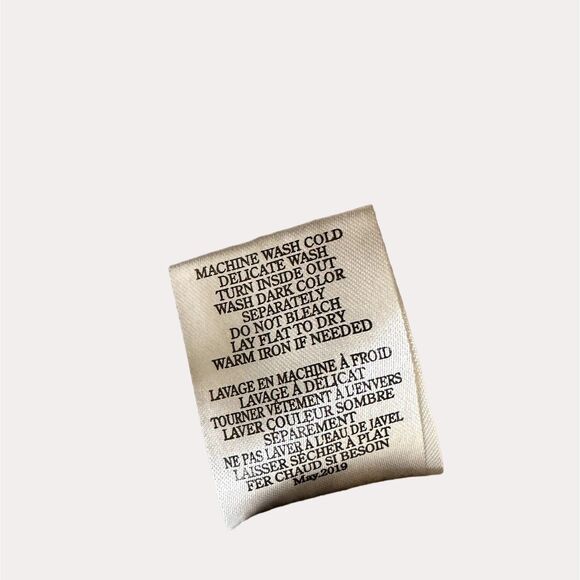 MACHINE WASH COLD
DELICATE WASH
TURN INSIDE OUT
WASH DARK COLOR
SEPARATELY
DO NOT BLEACH
LAY FLAT TO DRY
WARM IRON IF NEEDED
LAVAGE EN MACHINE À FROID
LAVAGE À DÉLICAT
TOURNER VÊTEMENT À L'ENVERS
LAVER COULEUR SOMBRE
SÉPAREMENT
NE PAS LAVER À L'EAU DE JAVEL
LAISSER SECHER À PLAT
FER CHAUD SI BESOIN
May.2019